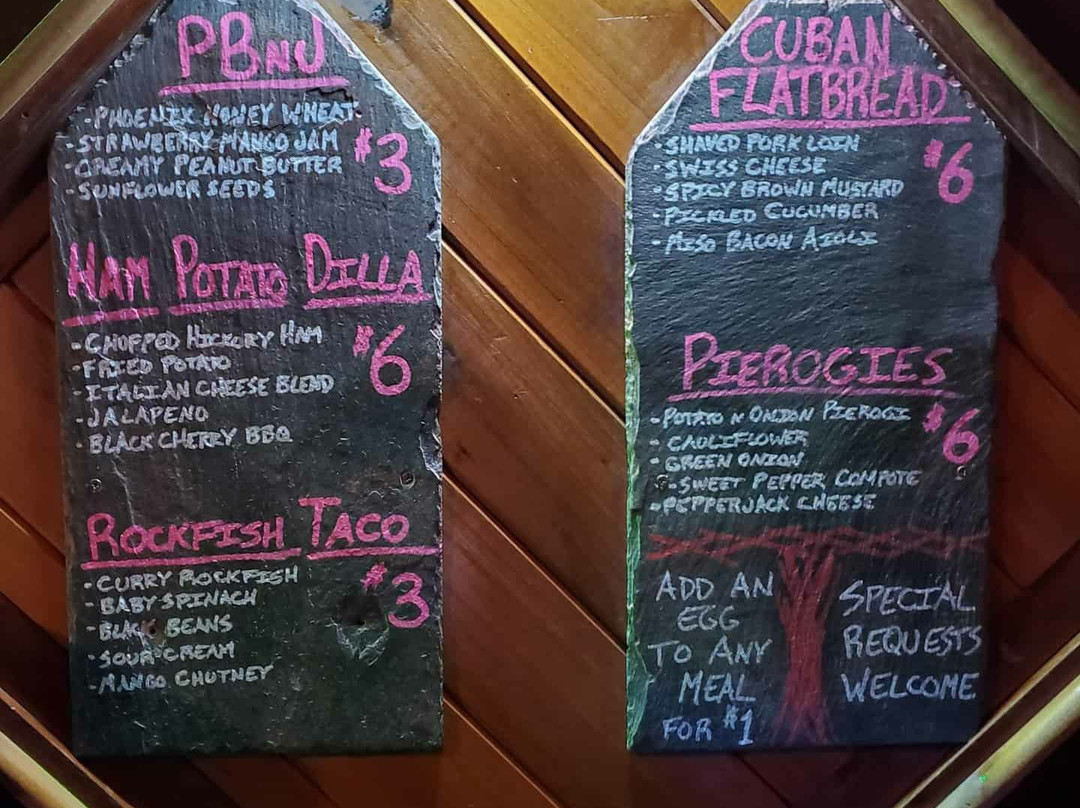 PBNJ
-PHOENIX HONEY WHEAT
-STRAWBERRY MANGO JAM
-CREAMY PEANUT BUTTER
-SUNFLOWER SEEDS
$3
HAM POTATO DILLA
-CHOPPED HICKORY HAM
-FRIED POTATO
-ITALIAN CHEESE BLEND
-JALAPENO
-BLACK CHERRY BBQ
$6
ROCKFISH TACO
-CURRY ROCKFISH
-BABY SPINACH
-BLACK BEANS
-SOUR CREAM
-MANGO CHUTNEY
$3
CUBAN
FLATBREAD
-SHAVED PORK LOIN
-SWISS CHEESE
-SPICY BROWN MUSTARD
-PICKLED CUCUMBER
-MISO BACON AIOLI
$6
PIEROGIES
-POTATO N ONION PIEROGI
-CAULIFLOWER
-GREEN ONION
-SWEET PEPPER COMPOTE
-PEPPERJACK CHEESE
$6
ADD AN
EGG
TO ANY
MEAL
FOR $1
SPECIAL
REQUESTS
WELCOME